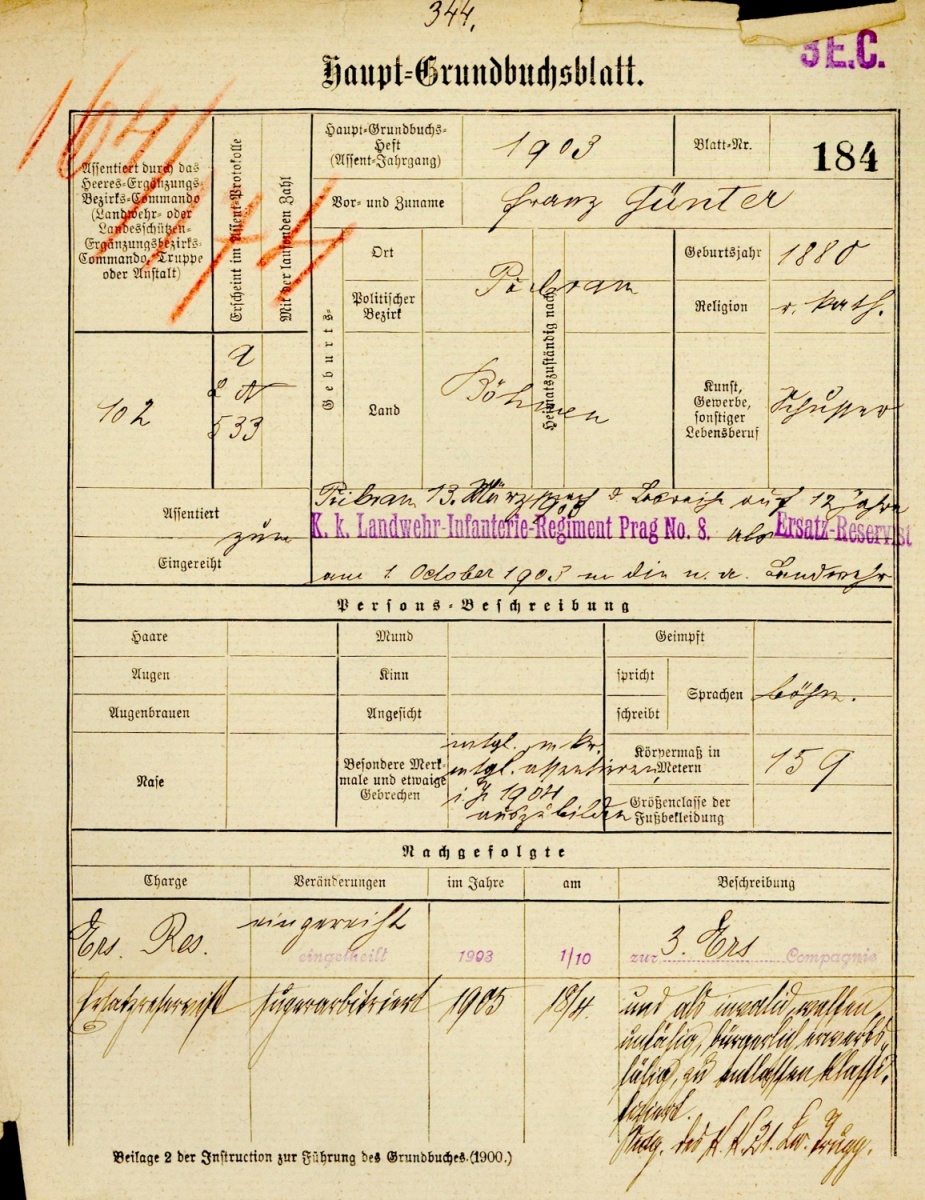 344.
3 E.C.
Haupt-Grundbuchsblatt.
Assentiert durch das
Heeres-Ergänzungs-
Bezirks-Commando
(Landwehr- oder
Landesschützen-
Ergänzungsbezirks-
Commando, Truppe
oder Anstalt)
Erscheint im Assent-Protokolle
Mit der laufenden Zahl
Haupt-Grundbuchs-
Heft
(Assent-Jahrgang)
1903
Blatt-Nr.
184
Vor- und Zuname
Franz Günter
Geburts-
Ort
Politischer
Bezirk
Pribram
Land
Böhmen
Heimatszuständig nach
Geburtsjahr
1880
Religion
r. kath.
Kunst,
Gewerbe,
sonstiger
Lebensberuf
Schuster
102
533
Assentiert
Pribram 13. März 1903 auf 12 Jahre
zum
K. k. Landwehr-Infanterie-Regiment Prag No. 8. als Ersatz-Reservist
Eingereiht
am 1. October 1903 in die n. a. Landwehr
Persons-Beschreibung
Haare
Mund
Geimpft
Augen
Kinn
spricht
Sprachen
böhm.
Augenbrauen
Angesicht
schreibt
Nase
Besondere Merk-
male und etwaige
Gebrechen
assentieren
1904
auszubilden
Körpermaß in
Metern
159
Größenclasse der
Fußbekleidung
Nachgefolgte
Charge
Veränderungen
im Jahre
am
Beschreibung
Ers. Res.
eingereiht
eingetheilt
1903
1/10
zur 3. Ers Compagnie
Ersatzreservist
superarbitriert
1905
18/4.
und als invalid, waffen-
unfähig, bürgerlich erwerbs-
fähig, zu entlassen klassi-
ficiert.
Beilage 2 der Instruction zur Führung des Grundbuches (1900.)